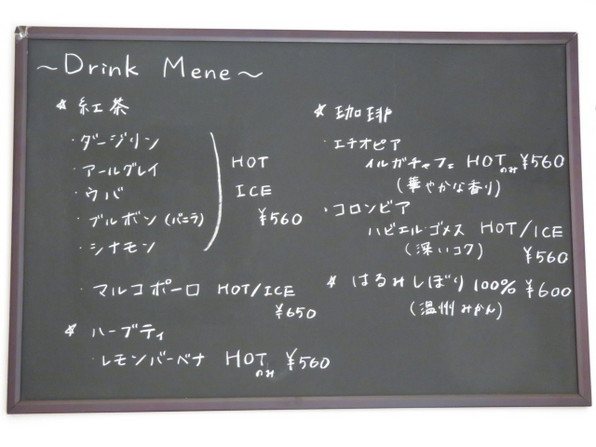 ~Drink Mene~
* 紅茶
・ダージリン
・アールグレイ
・ウバ
・ブルボン(バニラ)
・シナモン
HOT
ICE
¥560
・マルコポーロ HOT/ICE
¥650
* ハーブティ
・レモンバーベナ HOTのみ ¥560
* 珈琲
・エチオピア
イルガチャフェ HOTのみ ¥560
(華やかな香り)
・コロンビア
ハビエル・ゴメス HOT/ICE
(深いコク) ¥560
* はるみしぼり 100% ¥600
(温州みかん)